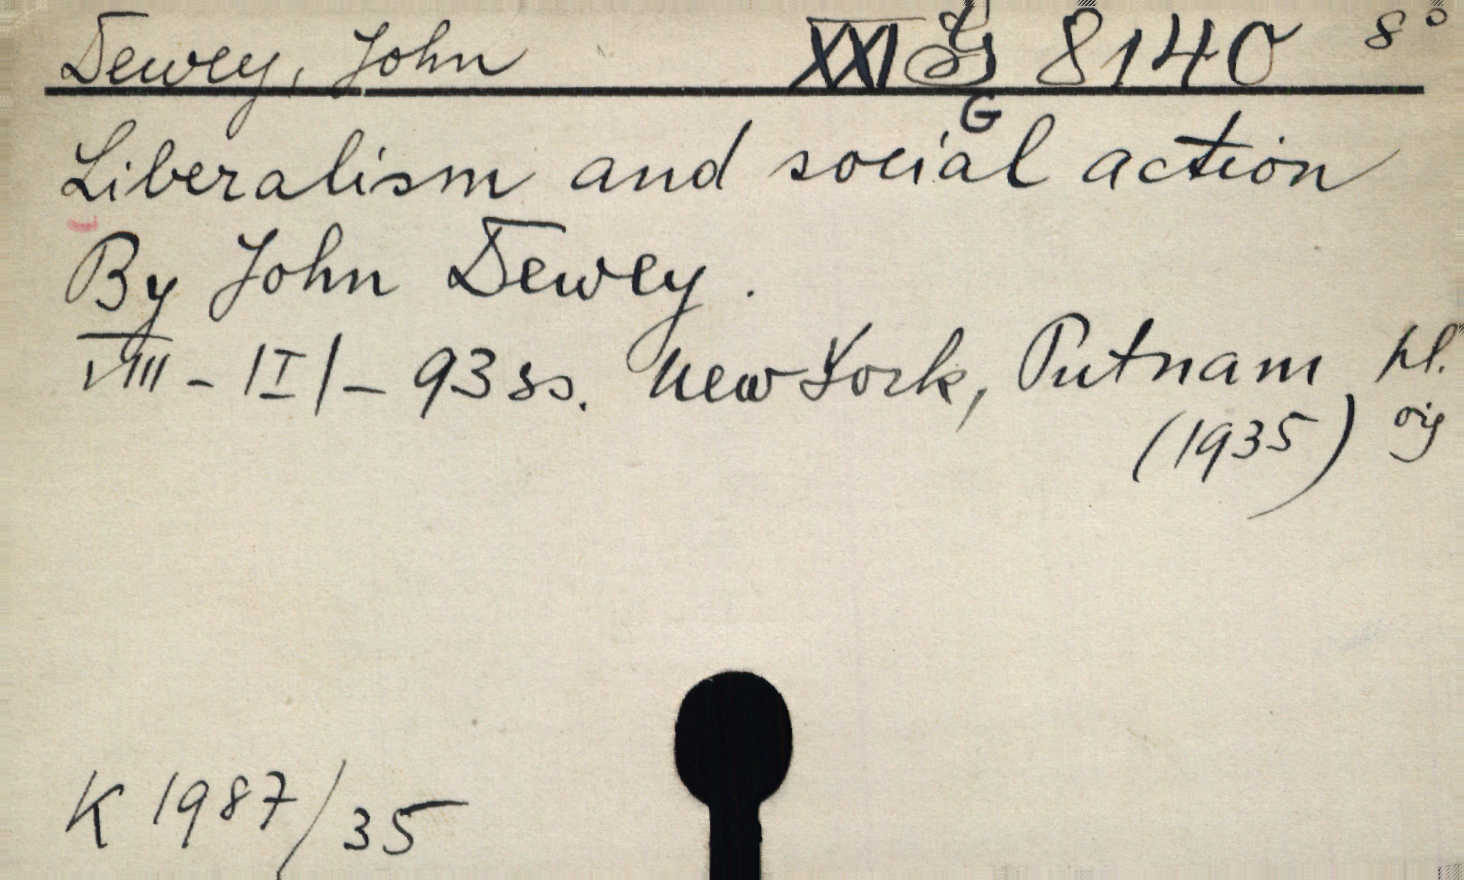 Dewey, John XXI 8140 8°
G
Liberalism and social action
By John Dewey.
VIII - |I| - 93 ss. New York, Putnam pl.
(1935)
K 1987/35